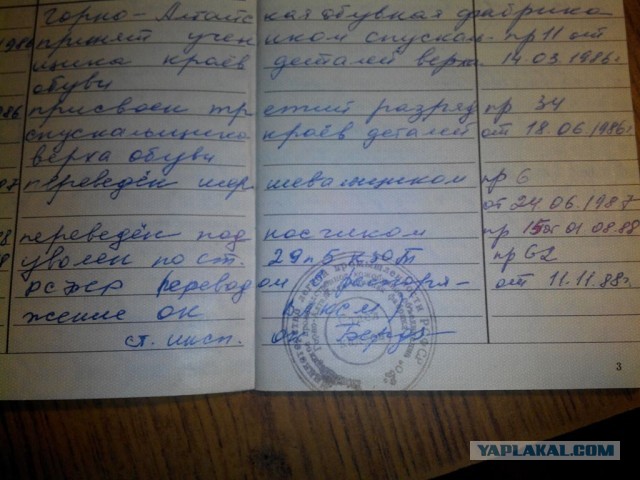 Горно-Алтайская обувная фабрика
1986 принят учеником спускаль- пр 11 от
щика краёв деталей верха 14.03.1986г
обуви
986 присвоен третий разряд пр 34
спускальщика краёв деталей от 18.06.1986г
верха обуви
87 переведён шершевальщиком пр 6
от 24.06.1987
88 переведён подносчиком пр 15 от 01.08.88
уволен по ст. 29 п 5 КЗоТ пр 62
РСФСР переводом в распоря- от 11.11.88г
жение ОК
ст. инсп. ОК
промышленности РСФСР
3
YAPLAKAL.COM